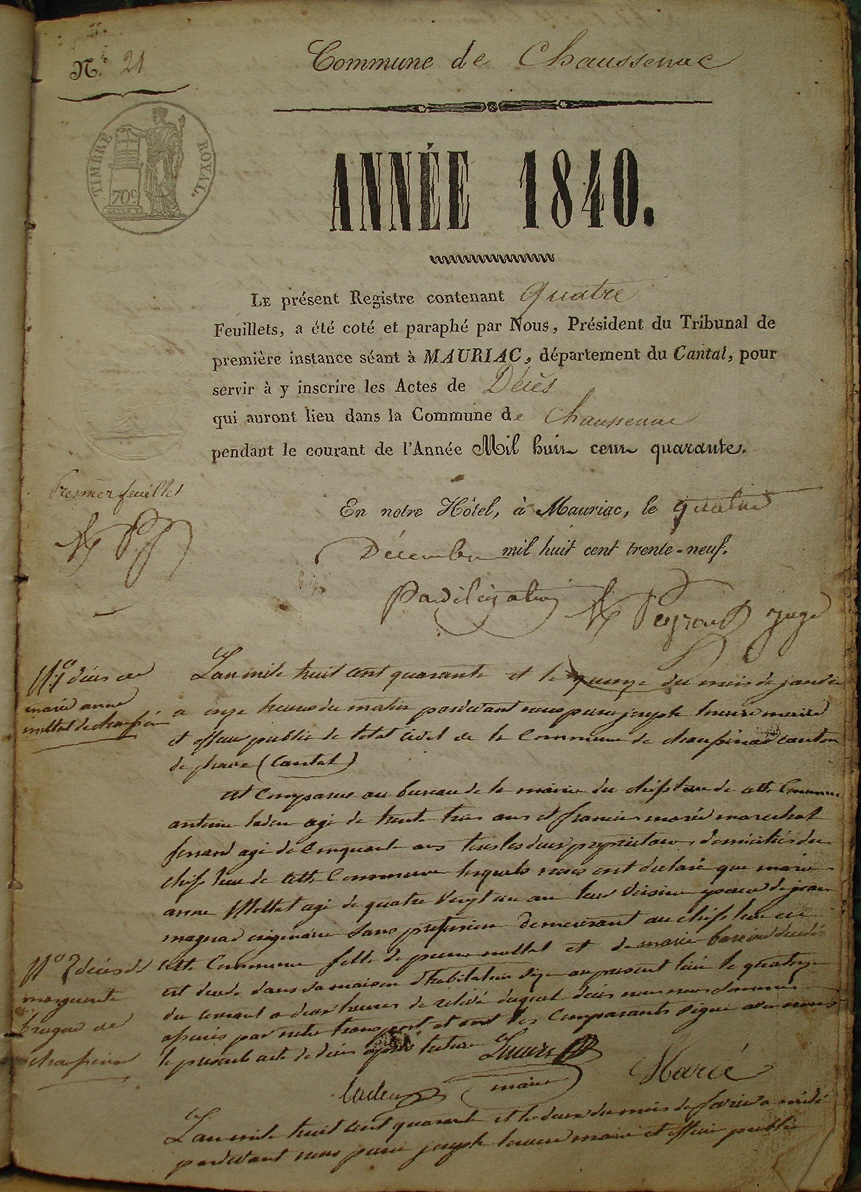 N.º 21
Commune de Chaussenac
TIMBRE ROYAL.
70c
ANNÉE 1840.
Le présent Registre contenant Quatre
Feuillets, a été coté et paraphé par Nous, Président du Tribunal de
première instance séant à MAURIAC, département du Cantal, pour
servir à y inscrire les Actes de Décès
qui auront lieu dans la Commune de Chaussenac
pendant le courant de l'Année Mil huit cent quarante.
Premier feuillet
En notre Hôtel, à Mauriac, le quatre
Décembre mil huit cent trente-neuf.
Par délégation Peyrout juge
Nº 1 décès de
marie anne
mellet de
L'an mile huit cent quarante et le quinze du mois de janvier
a onze heures du matin pardevant nous pierre joseph maire
et officier public de l'etat civil de la Commune de canton
de pleaux (Cantal)
est comparus au bureau de la mairie du chef lieu de cette Commune
antoine agé de trente trois ans et francois marie marechal
ferrand agé de cinquante ans tous les deux propriétaires domiciliés du
chef lieu de cette Commune lesquels nous ont declaré que marie
anne Mellet agé de quatre vingt un an leur voisine epouse de jean
magnac originaire sans profession demeurant au chef lieu de
cette Commune fille de pierre mellet et de marie décédés
est décédé dans sa maison d'habitation au present lieu le quatorze
du courant a deux heures de relevé duquel décès nous nous sommes
assurés par notre transport et ont les comparants signé avec nous
le present acte de décès après lecture
maire
Marié
Nº 2 décès de
marguerite
de
L'an mile huit cent quarante et le deux du mois de fevrier a midi
pardevant nous pierre joseph maire et officier public